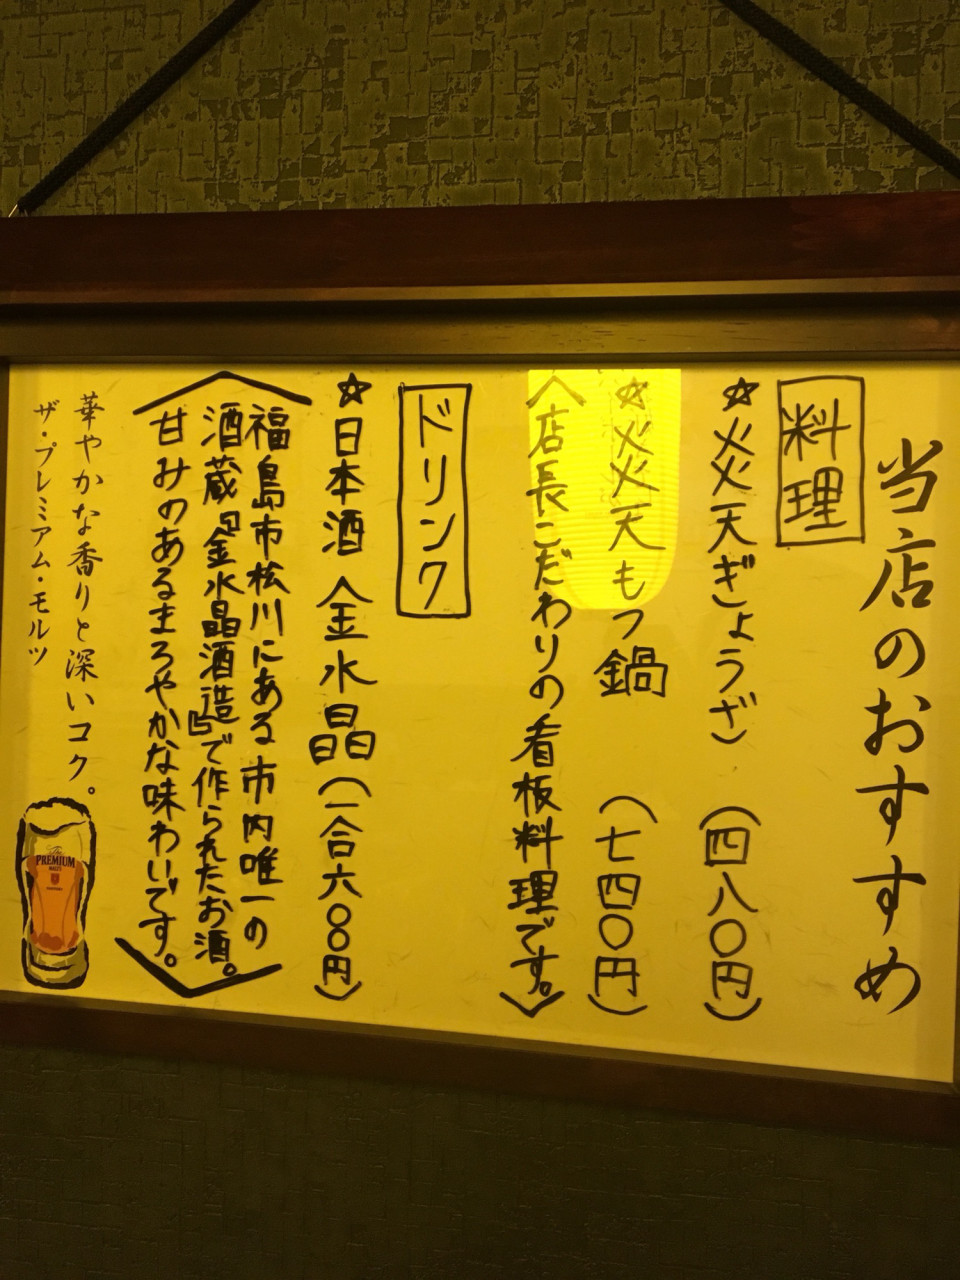 当店のおすすめ
料理
☆炎天ぎょうざ (四八〇円)
☆炎天もつ鍋 (七四〇円)
〈店長こだわりの看板料理です。〉
ドリンク
☆日本酒 金水晶(一合六〇〇円)
〈福島市松川にある市内唯一の
酒蔵『金水晶酒造』で作られたお酒。
甘みのあるまろやかな味わいです。〉
華やかな香りと深いコク。
ザ・プレミアム・モルツ
The
PREMIUM
MALT'S